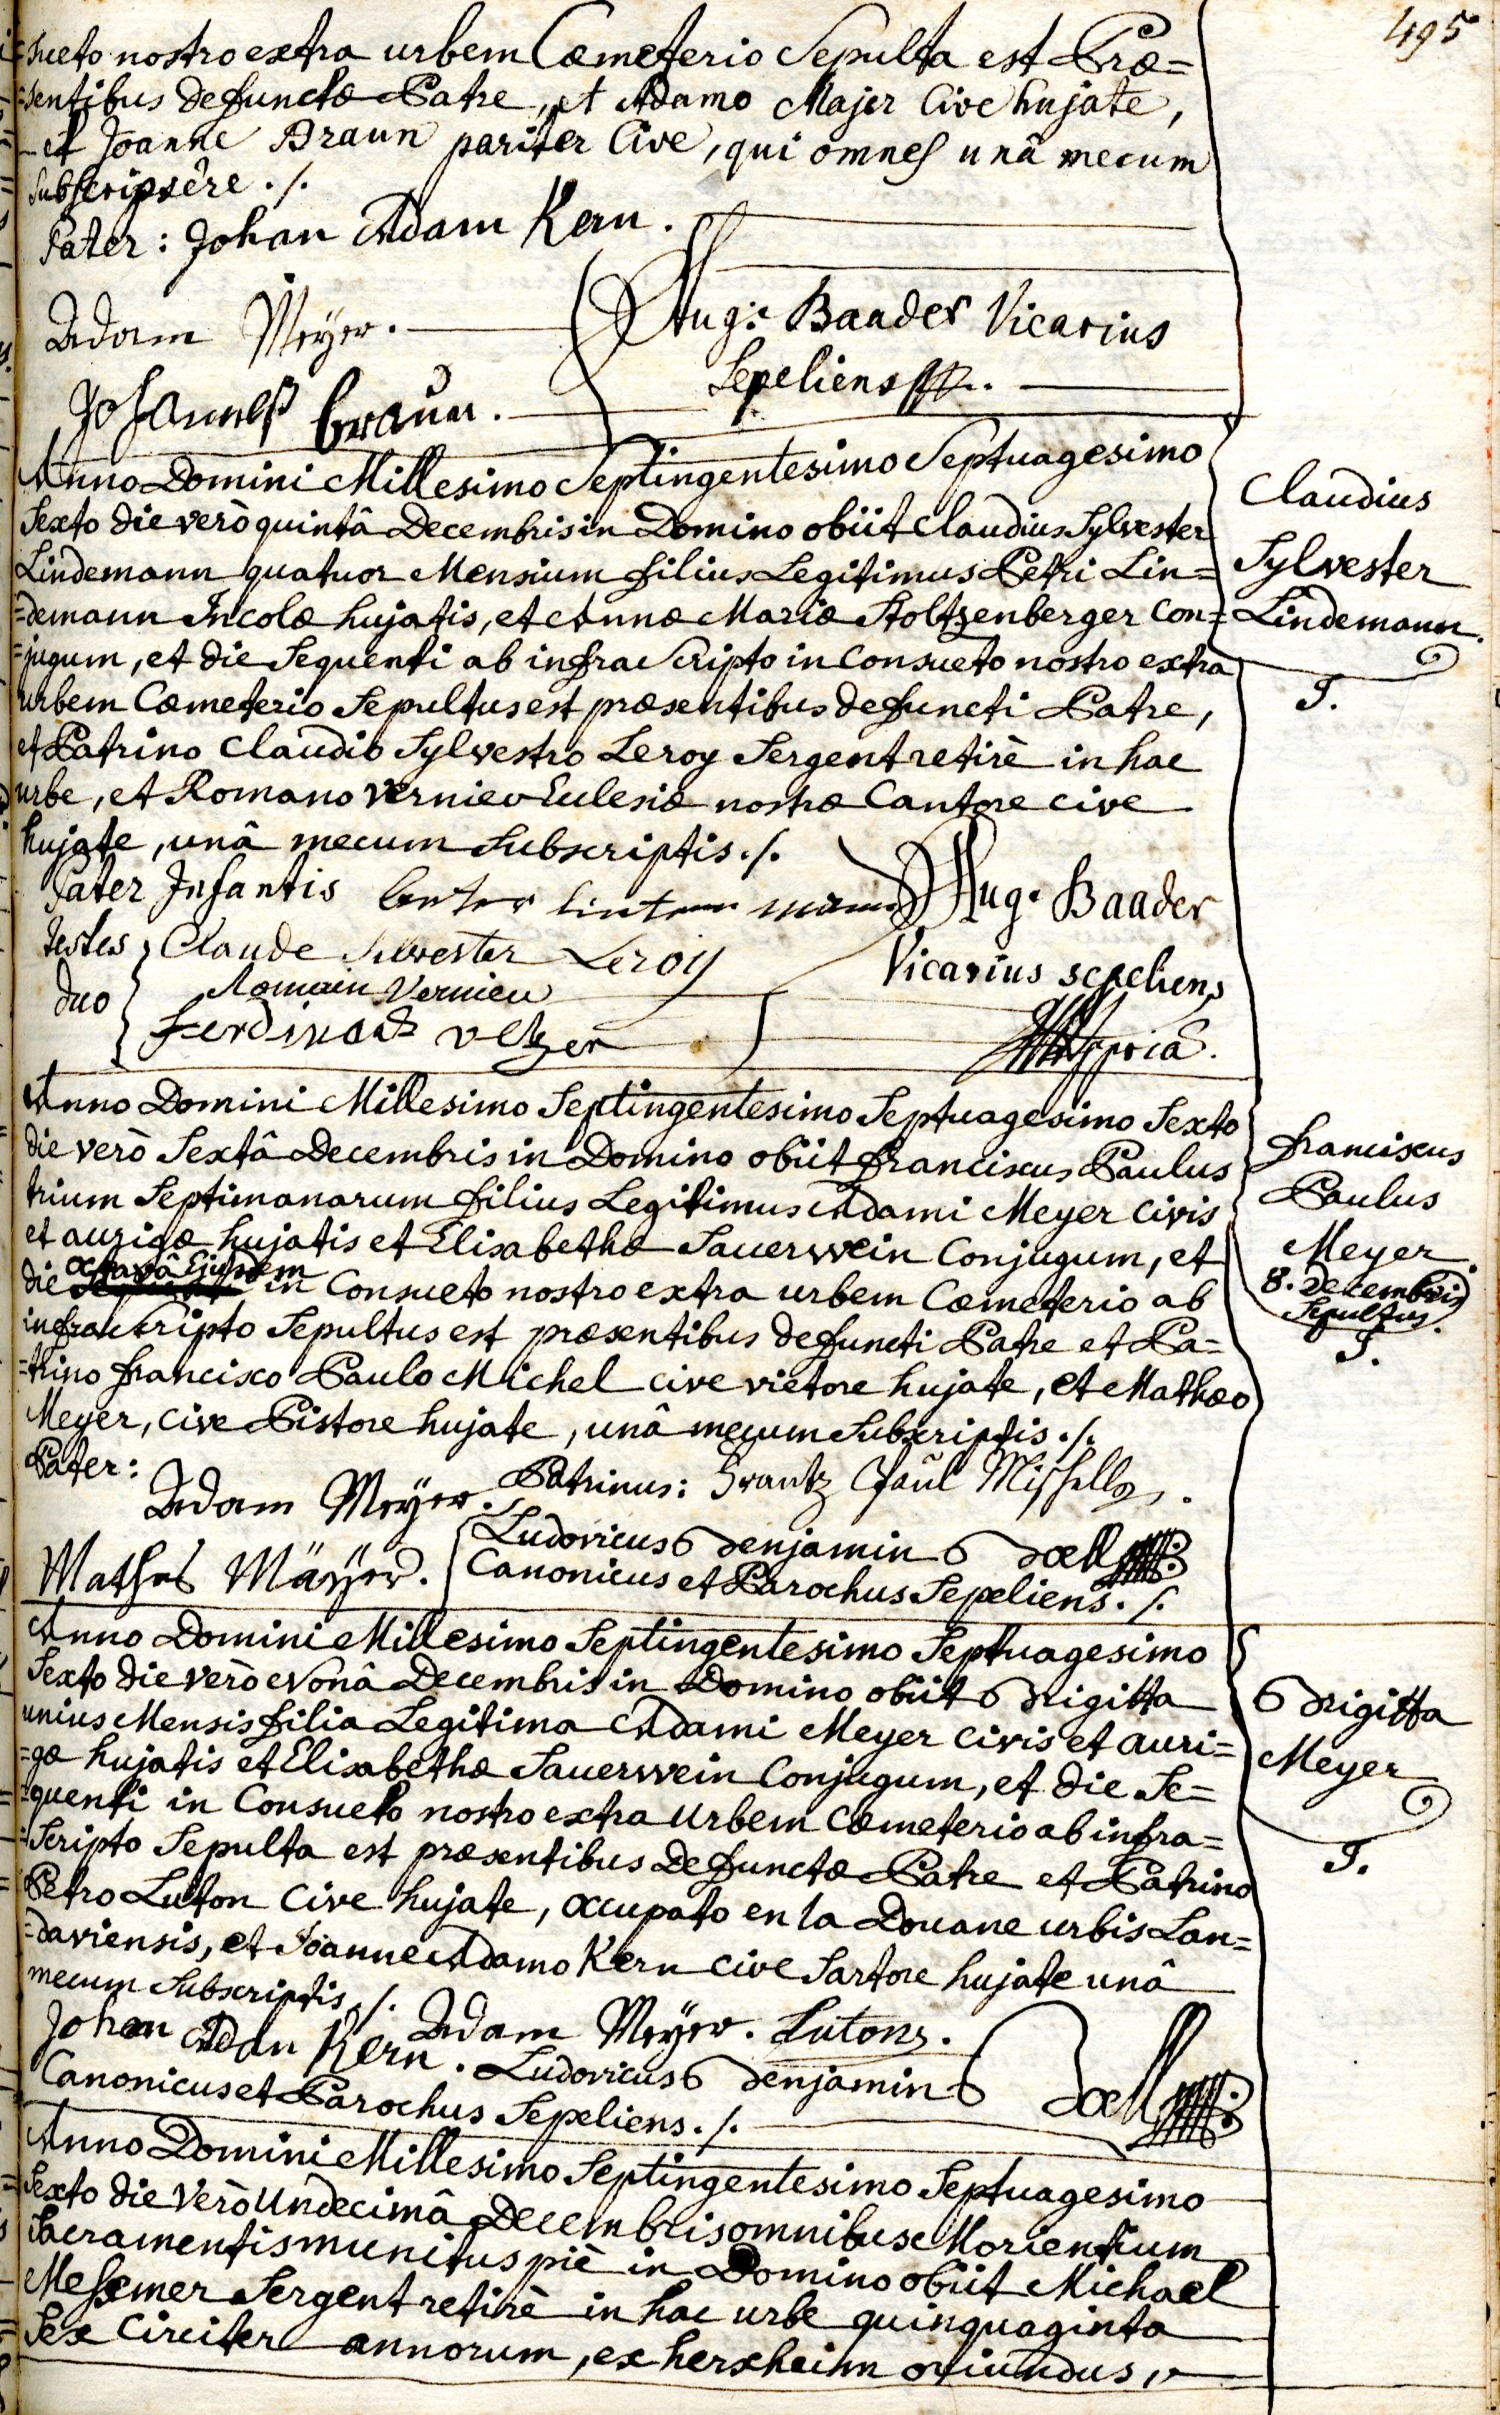 495
=sueto nostro extra urbem Cœmeterio Sepulta est Præ=
=sentibus defunctæ Patre, et Adamo Majer Cive hujate,
et Joanne Braun pariter Cive, qui omnes unâ mecum
subscripsêre ./.
Pater: Johan Adam Kern.
Adam Meÿer.
Aug: Baader Vicarius
Sepeliens
Johannes braun.
Anno Domini Millesimo Septingentesimo Septuagesimo
Sexto die verò quintâ Decembris in Domino obiit Claudius Sylvester
Lindemann quatuor Mensium filius Legitimus Petri Lin=
=demann Incolæ hujatis, et Annæ Mariæ Stoltzenberger Con=
=jugum, et die Sequenti ab infra Scripto in Consueto nostro extra
urbem Cœmeterio Sepultus est præsentibus defuncti Patre,
et Patrino Claudio Sylvestro Leroy Sergent retirè in hac
urbe, et Romano Vernieu Eclesiæ nostræ Cantore cive
hujate, unâ mecum Subscriptis ./.
Claudius
Sylvester
Lindemann.
S.
Pater Infantis
Aug. Baader
testes duo
Claude Silvester Leroÿ
Vicarius sepeliens
Romain Vernieu
Ferdinand velzer
ppria.
Anno Domini Millesimo Septingentesimo Septuagesimo Sexto
die verò Sextâ Decembris in Domino obiit franciscus Paulus
trium Septimanarum filius Legitimus Adami Meyer Civis
et aurigæ hujatis et Elisabethæ Sauerwein Conjugum, et
octavâ Ejusdem
die in Consueto nostro extra urbem Cœmeterio ab
infra Scripto Sepultus est præsentibus defuncti Patre et Pa=
=trino francisco Paulo Michel cive vietore hujate, et Mathæo
Meyer, cive Pistore hujate, unâ mecum Subscriptis ./.
franciscus
Paulus
Meyer
8. Decembris
Sepultus.
S.
Pater:
Adam Meÿer.
Patrinus: Frantz Paul Mischell
Mathes Mäÿer.
Ludovicus Benjamin Doell
Canonicus et Parochus Sepeliens ./.
Anno Domini Millesimo Septingentesimo Septuagesimo
Sexto die verò Nonâ Decembris in Domino obiit Brigitta
unius Mensis filia Legitima Adami Meyer Civis et auri=
=gæ hujatis et Elisabethæ Sauerwein Conjugum, et die Se=
=quenti in Consueto nostro extra urbem Cœmeterio ab infra=
=Scripto Sepulta est præsentibus Defunctæ Patre et Patrino
Petro Luton Cive hujate, occupato en la Douane urbis Lan=
=daviensis, et Joanne Adamo Kern cive Sartore hujate unâ
mecum Subscriptis ./.
Brigitta
Meyer
S.
Johan Adam Kern. Adam Meÿer. Lutons.
Ludovicus Benjamin Doell
Canonicus et Parochus Sepeliens ./.
Anno Domini Millesimo Septingentesimo Septuagesimo
Sexto die Verò Undecimâ Decembris omnibus Morientium
Sacramentis munitus piè in Domino obiit Michael
Messemer Sergent retirè in hac urbe quinquaginta
Sex Circiter annorum, ex herxheim oriundus,